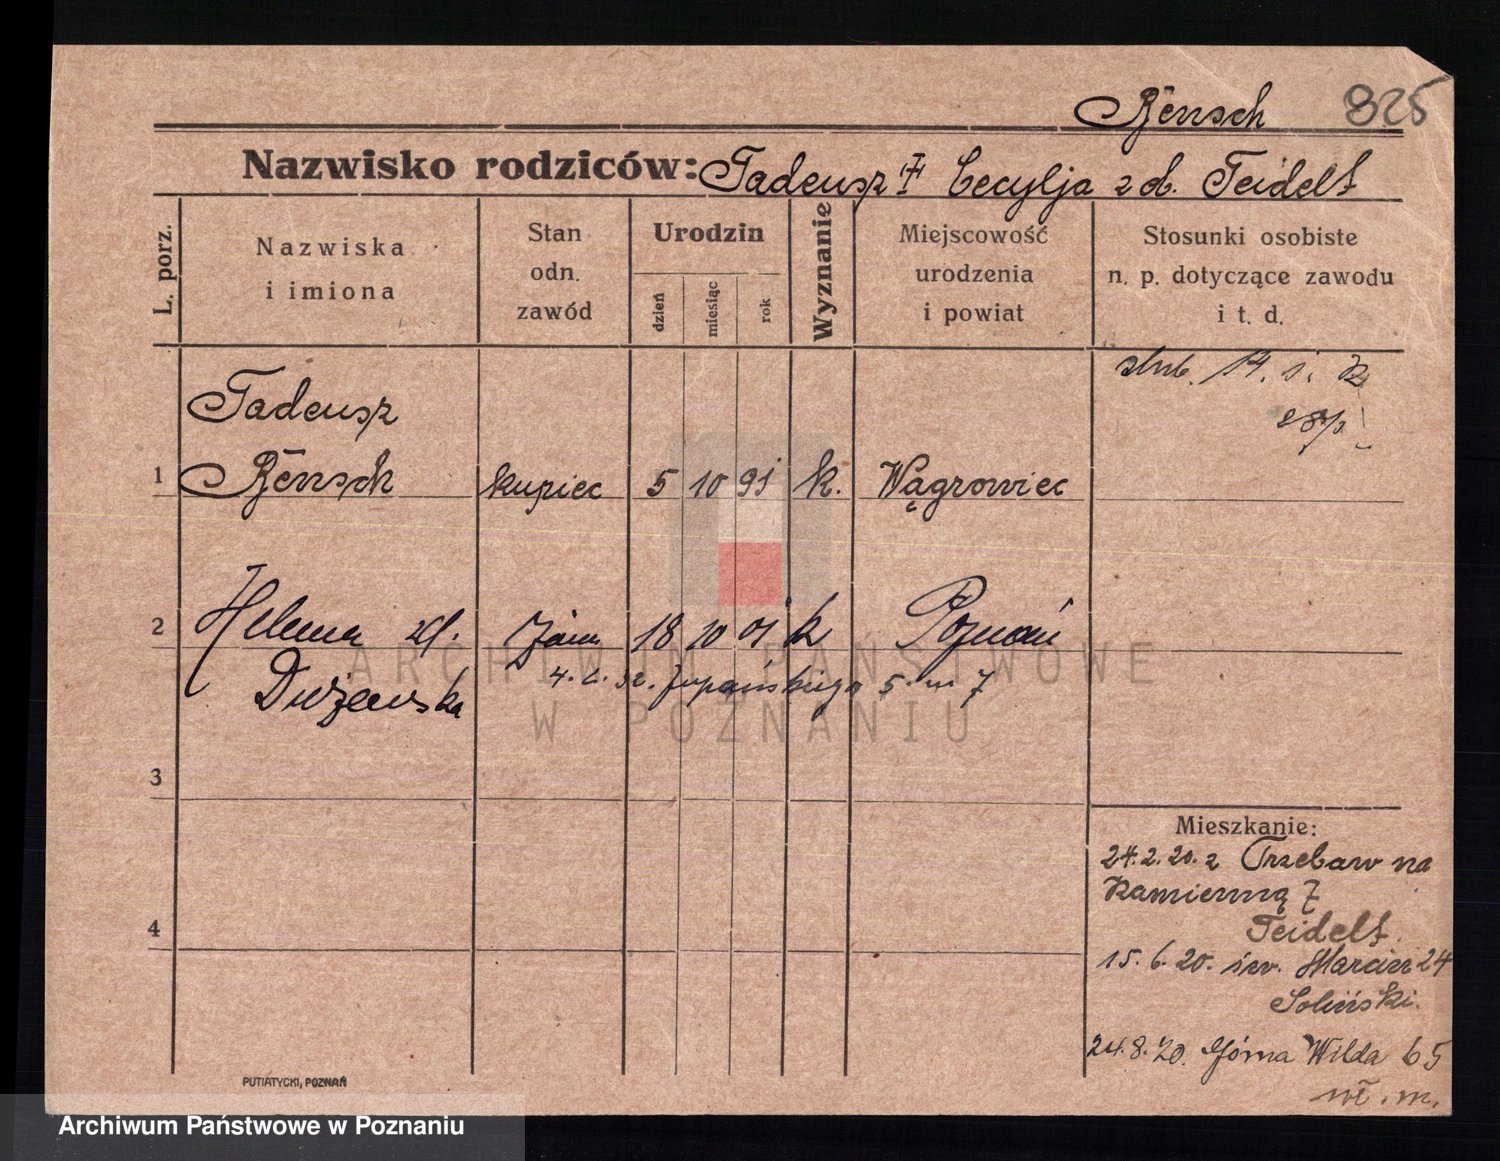 Bënsch 825
Nazwisko rodziców: Tadeusz Cecylja z d. Teidelt
L. porz.
Nazwiska
i imiona
Stan
odn.
zawód
Urodzin
dzień
miesiąc
rok
Wyznanie
Miejscowość
urodzenia
i powiat
Stosunki osobiste
n. p. dotyczące zawodu
i t. d.
ślub. 14.
Tadeusz
1 Bënsch kupiec 5 10 91 k. Wągrowiec
2 Helena żona 18 10 01 k Poznań
Dużewska
4. Żupańskiego 5 m 7
3
4
Mieszkanie:
24.2.20. z Trzebaw na
Kamienną 7
Teidelt.
15.6.20. św. Marcin 24
Soliński.
24.8.20. Górna Wilda 65
wł. m.
PUTIATYCKI, POZNAŃ
ARCHIWUM PAŃSTWOWE
W POZNANIU
Archiwum Państwowe w Poznaniu